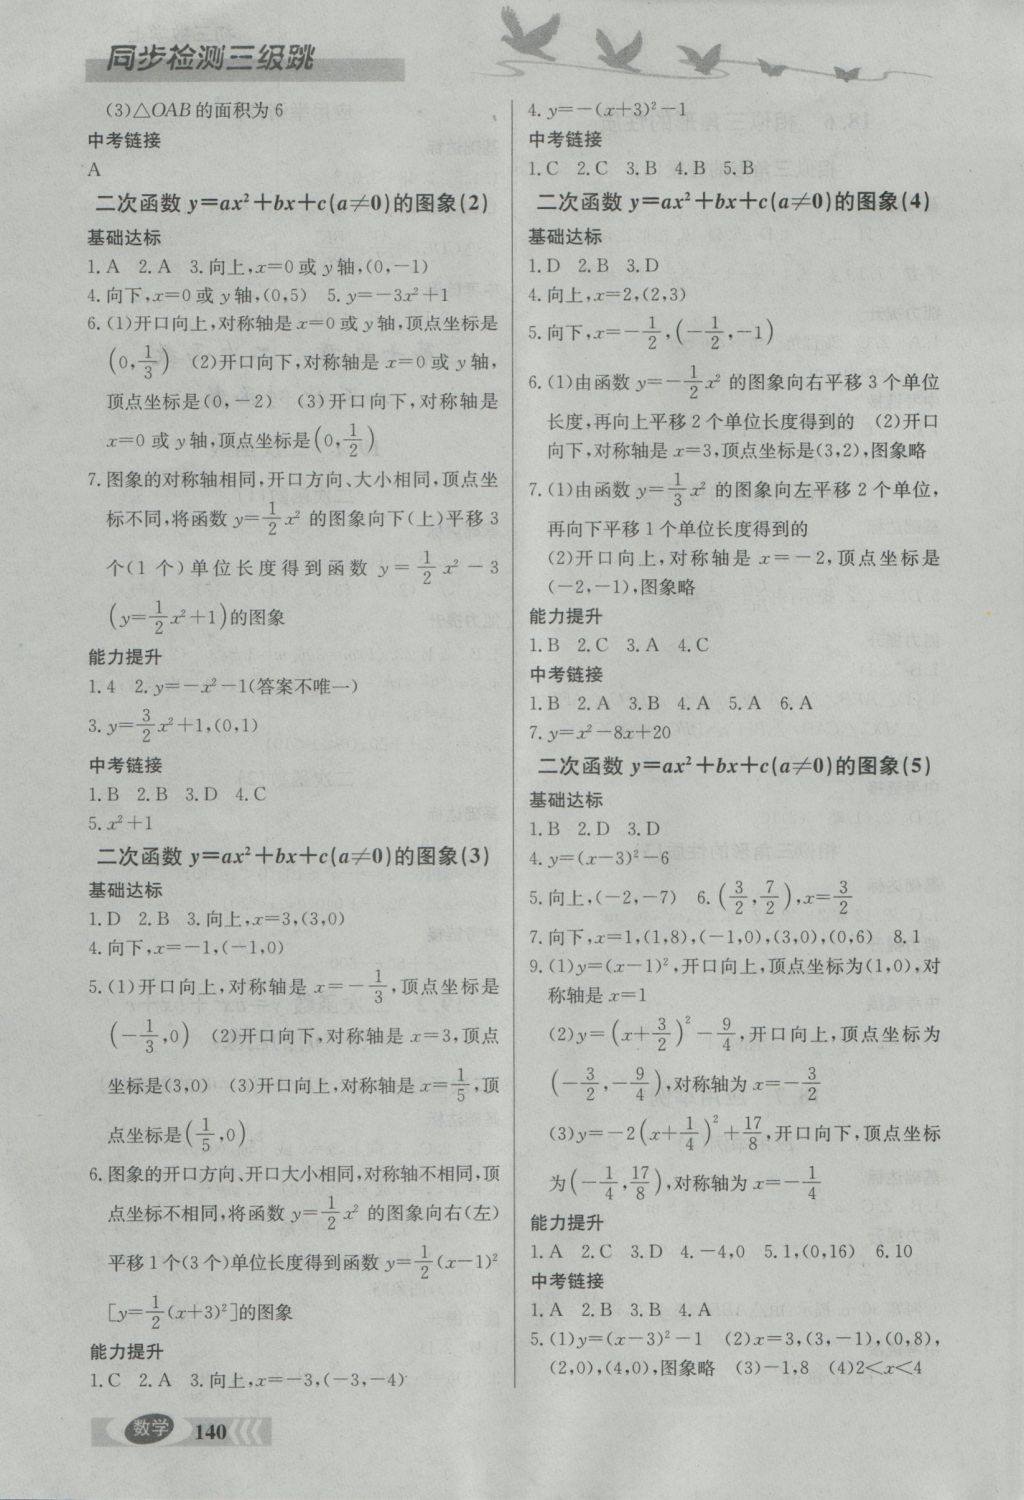 同步检测三级跳
(3)△OAB的面积为6
中考链接
A
二次函数 y=ax²+bx+c(a≠0)的图象(2)
基础达标
1. A 2. A 3. 向上,x=0 或 y 轴,(0,-1)
4. 向下,x=0 或 y 轴,(0,5) 5. y=-3x²+1
6. (1)开口向上,对称轴是 x=0 或 y 轴,顶点坐标是
(0,1/3) (2)开口向下,对称轴是 x=0 或 y 轴,
顶点坐标是(0,-2) (3)开口向下,对称轴是
x=0 或 y 轴,顶点坐标是(0,1/2)
7. 图象的对称轴相同,开口方向、大小相同,顶点坐
标不同,将函数 y=1/2x² 的图象向下(上)平移 3
个(1 个)单位长度得到函数 y=1/2x²-3
(y=1/2x²+1)的图象
能力提升
1. 4 2. y=-x²-1(答案不唯一)
3. y=3/2x²+1,(0,1)
中考链接
1. B 2. B 3. D 4. C
5. x²+1
二次函数 y=ax²+bx+c(a≠0)的图象(3)
基础达标
1. D 2. B 3. 向上,x=3,(3,0)
4. 向下,x=-1,(-1,0)
5. (1)开口向上,对称轴是 x=-1/3,顶点坐标是
(-1/3,0) (2)开口向下,对称轴是 x=3,顶点
坐标是(3,0) (3)开口向上,对称轴是 x=1/5,顶
点坐标是(1/5,0)
6. 图象的开口方向、开口大小相同,对称轴不相同,顶
点坐标不相同,将函数 y=1/2x² 的图象向右(左)
平移 1 个(3 个)单位长度得到函数 y=1/2(x-1)²
[y=1/2(x+3)²]的图象
能力提升
1. C 2. A 3. 向上,x=-3,(-3,-4)
4. y=-(x+3)²-1
中考链接
1. C 2. C 3. B 4. B 5. B
二次函数 y=ax²+bx+c(a≠0)的图象(4)
基础达标
1. D 2. B 3. D
4. 向上,x=2,(2,3)
5. 向下,x=-1/2,(-1/2,-1)
6. (1)由函数 y=-1/2x² 的图象向右平移 3 个单位
长度,再向上平移 2 个单位长度得到的 (2)开口
向下,对称轴是 x=3,顶点坐标是(3,2),图象略
7. (1)由函数 y=1/3x² 的图象向左平移 2 个单位,
再向下平移 1 个单位长度得到的
(2)开口向上,对称轴是 x=-2,顶点坐标是
(-2,-1),图象略
能力提升
1. B 2. C 3. A 4. C
中考链接
1. B 2. A 3. B 4. A 5. A 6. A
7. y=x²-8x+20
二次函数 y=ax²+bx+c(a≠0)的图象(5)
基础达标
1. B 2. D 3. D
4. y=(x-3)²-6
5. 向上,(-2,-7) 6. (3/2,7/2),x=3/2
7. 向下,x=1,(1,8),(-1,0),(3,0),(0,6) 8. 1
9. (1)y=(x-1)²,开口向上,顶点坐标为(1,0),对
称轴是 x=1
(2)y=(x+3/2)²-9/4,开口向上,顶点坐标为
(-3/2,-9/4),对称轴为 x=-3/2
(3)y=-2(x+1/4)²+17/8,开口向下,顶点坐标
为(-1/4,17/8),对称轴为 x=-1/4
能力提升
1. A 2. C 3. D 4. -4,0 5. 1,(0,16) 6. 10
中考链接
1. A 2. B 3. B 4. A
5. (1)y=(x-3)²-1 (2)x=3,(3,-1),(0,8),
(2,0),(4,0),图象略 (3)-1,8 (4)2<x<4
数学 140